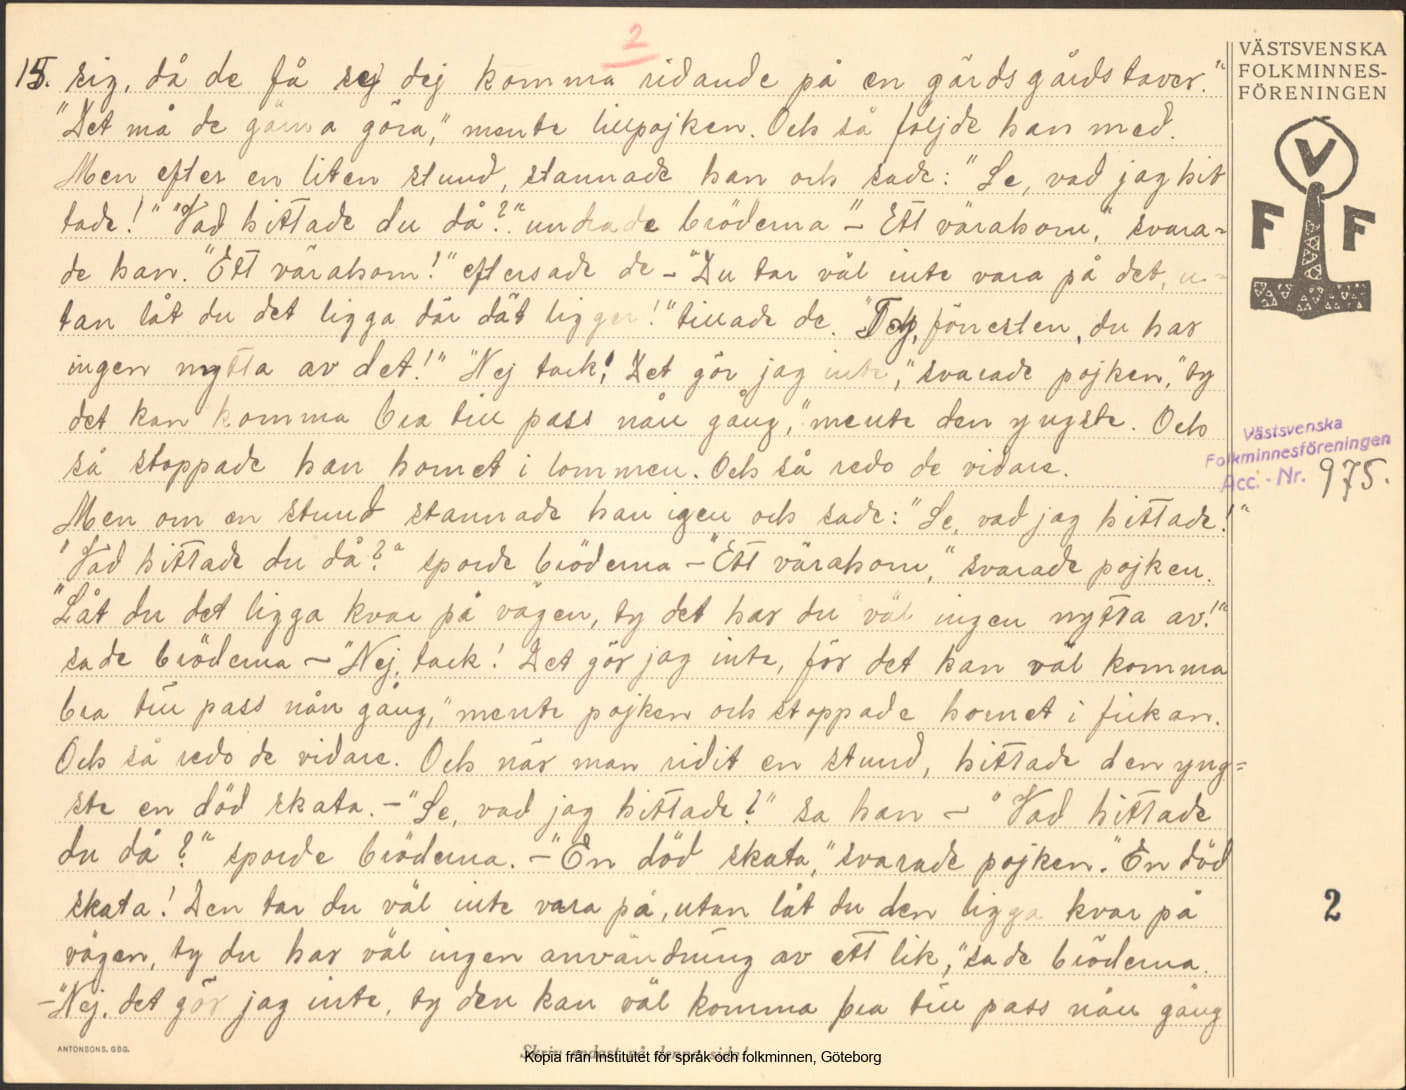 2
15. sig, då de få sej dej komma ridande på en gärdsgårdstaver."
"Det må de gärna göra," mente lillpojken. Och så följde han med.
Men efter en liten stund, stannade han och sade: "Se, vad jag hit
tade!" "Vad hittade du då?" undrade bröderna – "Ett vädrahorn," svara=
de han. "Ett vädrahorn!" eftersade de – "Du tar väl inte vara på det, u=
tan låt du det ligga där dät ligger!" tillade de. "Tey, förresten, du har
ingen nytta av det!" "Nej tack! Det gör jag inte," svarade pojken, "ty
det kan komma bra till pass nån gång," mente den yngste. Och
så stoppade han hornet i lommen. Och så redo de vidare.
Men om en stund stannade han igen och sade: "Se, vad jag hittade!"
"Vad hittade du då?" sporde bröderna – "Ett vädrahorn," svarade pojken.
"Låt du det ligga kvar på vägen, ty det har du väl ingen nytta av!"
sade bröderna – "Nej, tack! Det gör jag inte, för det kan väl komma
bra till pass nån gång," mente pojken och stoppade hornet i fickan.
Och så redo de vidare. Och när man ridit en stund, hittade den yng=
ste en död skata. – "Se, vad jag hittade?" sa han – "Vad hittade
du då?" sporde bröderna. – "En död skata," svarade pojken. "En död
skata! Den tar du väl inte vara på, utan låt du den ligga kvar på
vägen, ty du har väl ingen användning av ett lik," sade bröderna.
– "Nej, det gör jag inte, ty den kan väl komma bra till pass nån gång
VÄSTSVENSKA
FOLKMINNES-
FÖRENINGEN
V
F F
Västsvenska
Folkminnesföreningen
Acc. - Nr. 975.
2
ANTONSONS, GBG.
Skriv endast på denna sida!
Kopia från Institutet för språk och folkminnen, Göteborg